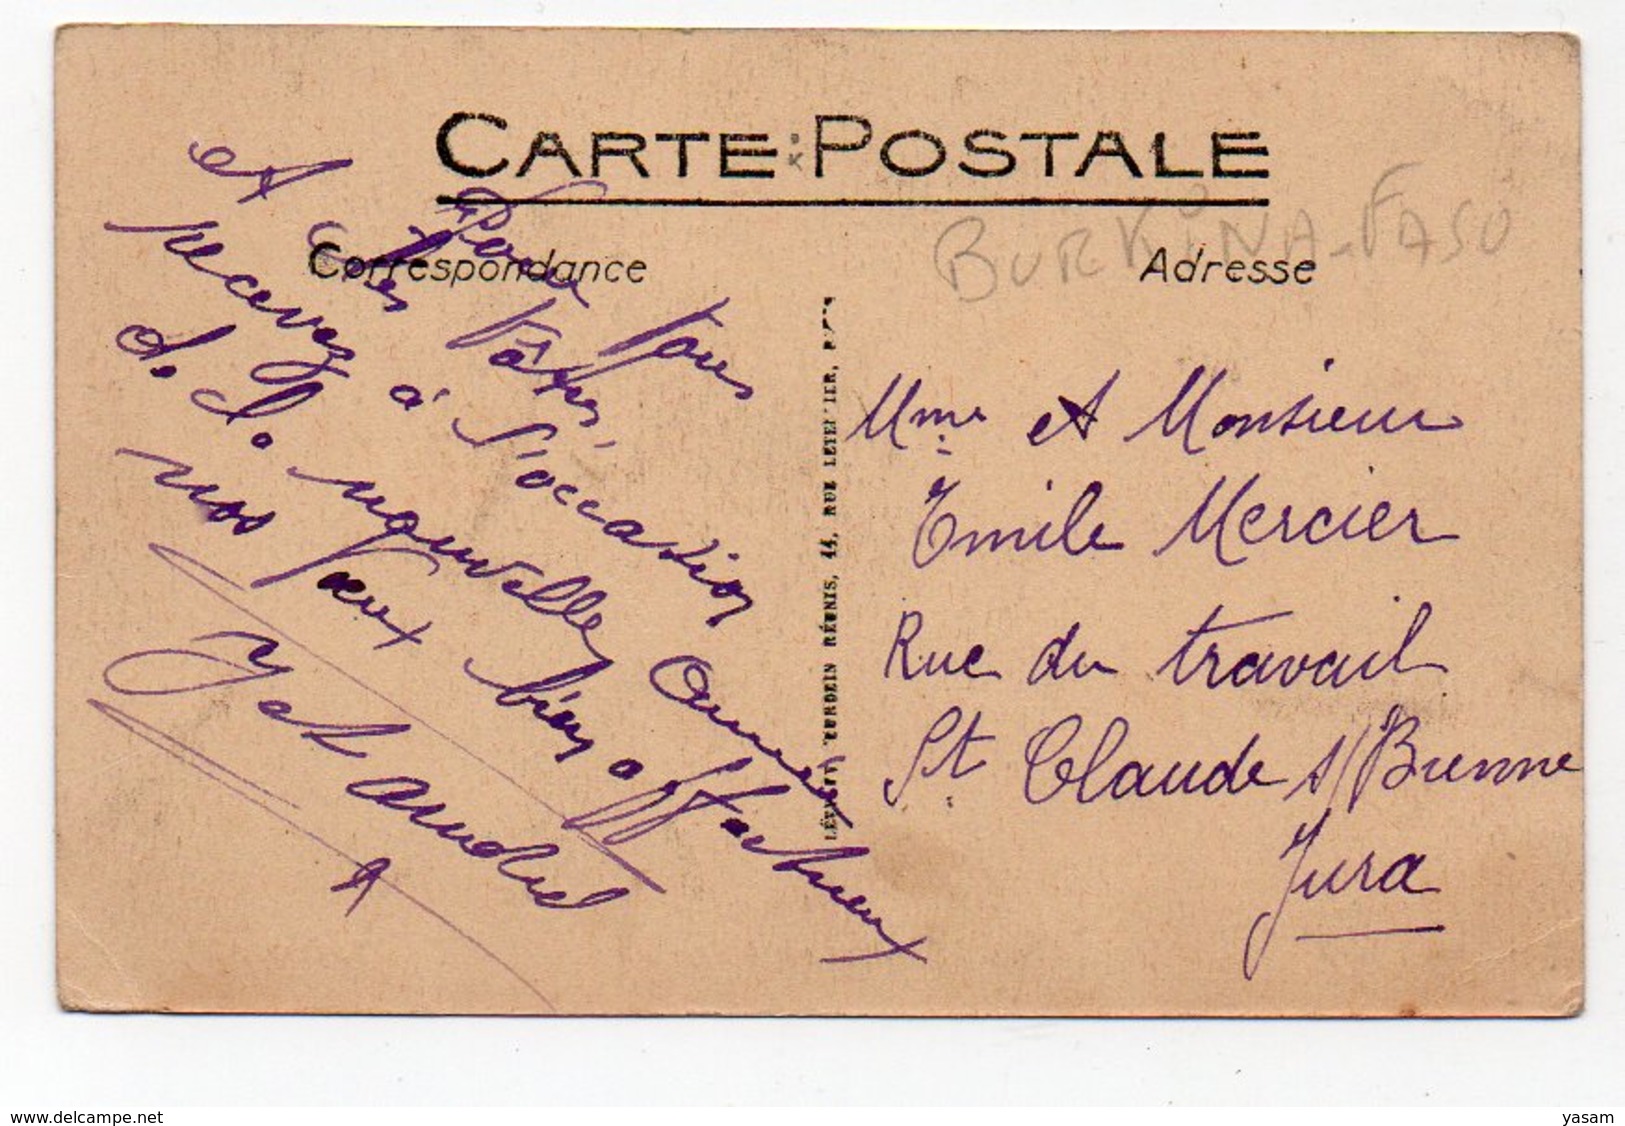 CARTE POSTALE
BURKINA-FASO
Correspondance
Adresse
Pour Vous
et les Vôtres,
recevez à l'occasion
de la nouvelle année
nos Vœux bien affectueux
LÉVY ET NEURDEIN RÉUNIS, 44, RUE LETELLIER, PARIS
Mme et Monsieur
Emile Mercier
Rue du travail
St Claude s/Bienne
Jura
www.delcampe.net
yasam